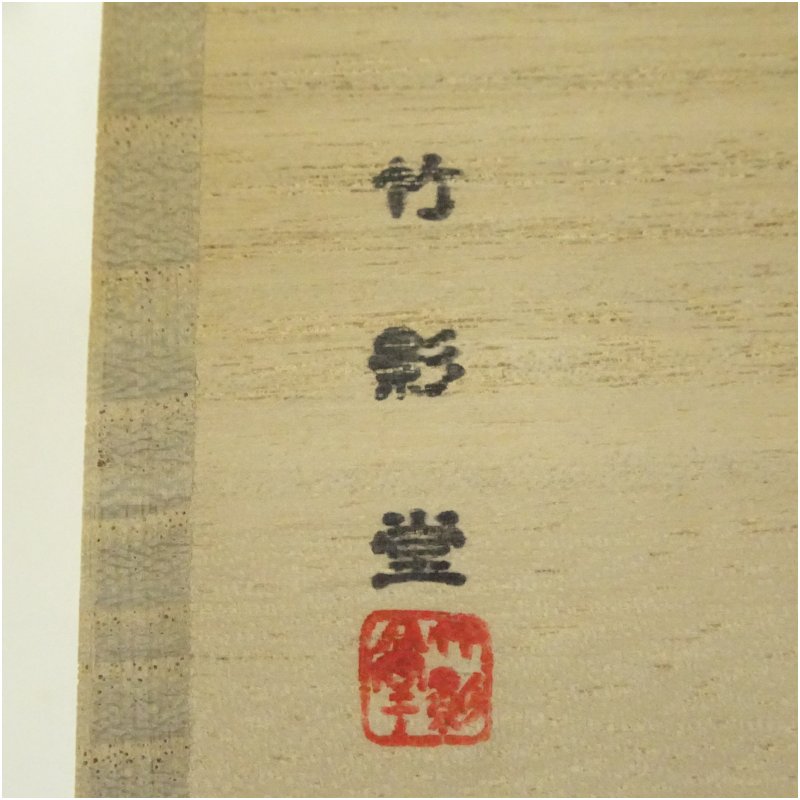 竹影堂
竹影